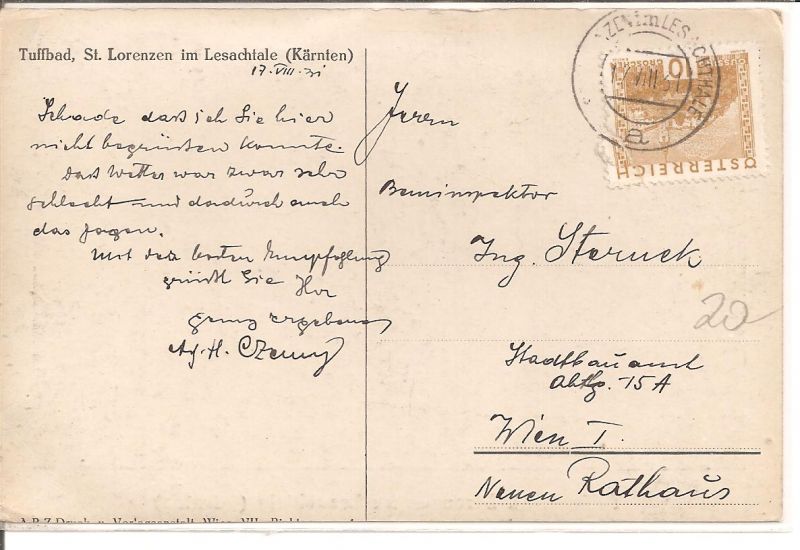 Tuffbad, St. Lorenzen im Lesachtale (Kärnten)
17. VIII. 31
Schade daß ich Sie hier
nicht begrüssen konnte.
Das Wetter war zwar sehr
schlecht und dadurch auch
das Jagen.
Mit den besten Empfehlung
grüßt Sie Ihr
ganz ergebener
H. Czerny
Herrn
Bauinspektor
Ing. Sterneck
Stadtbauamt
Abtlg. 15A
Wien I.
Neuen Rathaus
20
ZEN im LESACHTHALE
17 VIII 31
a
10
GROSCHEN
ÖSTERREICH